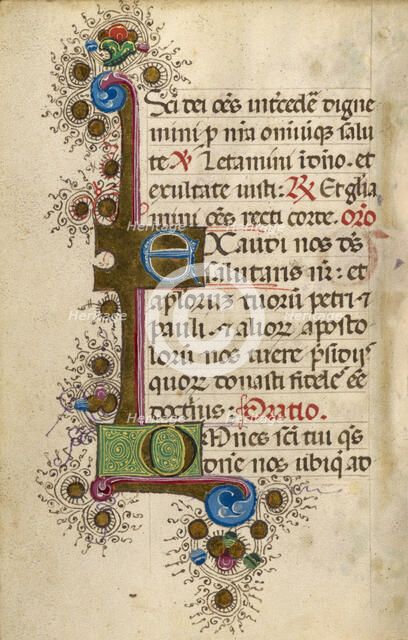 Sci dei oēs intercedē digne
mini p nr̄a oniuiq̄ salu
te ℣ Letamini ī dn̄o. et
exultate iusti: ℟ Et glia
mini oēs recti corde. Oro
EXaudi nos ds̄
salutaris nr̄: et
ap̄loruʒ tuorū petri ⁊
pauli. ⁊ alioꝝ aposto
lorū nos tuere p̄sidijs
quoꝝ donasti fidelē eē
doctīus: Oratio.
OMnes sc̄i tui qs̄
dn̄e nos ubiq̄ ad
Heritage Images